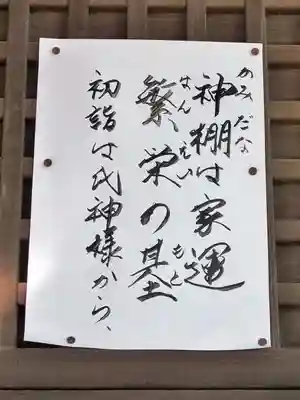 神棚は家運
かみだな
繁栄の基
はんえい
もと
初詣は氏神様から、